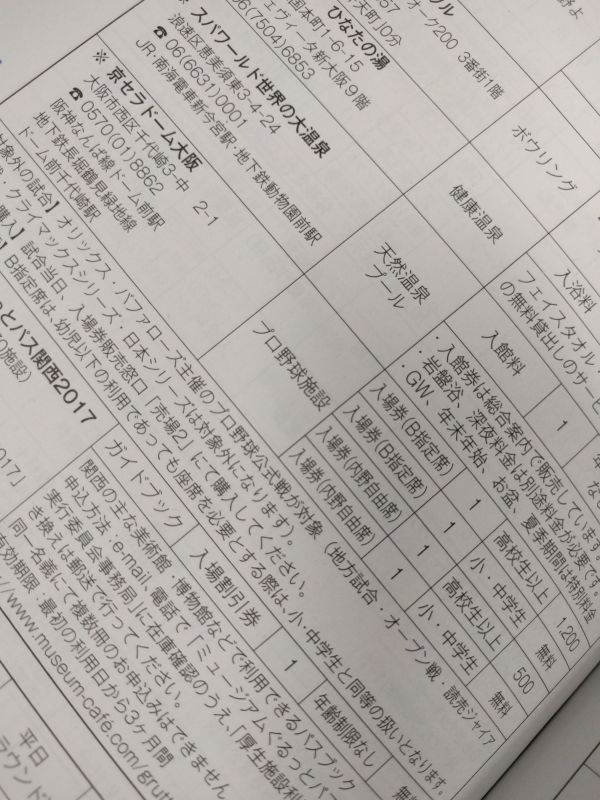 オーク200 3番街1階
ボウリング
ひなたの湯
国本町1-6-15
ェヴィータ新大阪9階
06(7504)6853
健康温泉
入浴料
フェイスタオル・
の無料貸出しのサービ
スパワールド世界の大温泉
浪速区恵美須東3-4-24
☎06(6631)0001
JR・南海電車新今宮駅・地下鉄動物園前駅
天然温泉
プール
入館料
1
・入館券は総合案内で販売しています。
・岩盤浴、深夜料金は別途料金が必要です。
・GW、年末年始、お盆、夏季期間は特別料金
※ 京セラドーム大阪
大阪市西区千代崎3-中 2-1
☎0570(01)8862
阪神なんば線ドーム前駅
地下鉄長堀鶴見緑地線
ドーム前千代崎駅
プロ野球施設
入場券(B指定席) 1 高校生以上 1,200
入場券(B指定席) 1 小・中学生 無料
入場券(内野自由席) 1 高校生以上 500
入場券(内野自由席) 1 小・中学生 無料
対象外の試合】オリックス・バファローズ主催のプロ野球公式戦が対象(地方試合・オープン戦 読売ジャイア
・クライマックスシリーズ・日本シリーズは対象外になります)。
購入】試合当日、入場券販売窓口「売場2」にて購入してください。
B指定席は、幼児以下の利用であっても座席を必要とする際は、小・中学生と同等の扱いとなります。
っとパス関西2017
ガイドブック
入場割引券
1
年齢制限なし
無料
関西の主な美術館・博物館などで利用できるパスブック
申込方法:e-mail、電話で「ミュージアムぐるっとパー
実行委員会事務局」に在庫確認のうえ、「厚生施設利
き換えは郵送で行ってください。
同一名義にて複数冊のお申込みはできません
有効期限:最初の利用日から3ヶ月間
//www.museum-cafe.com/grut
平日